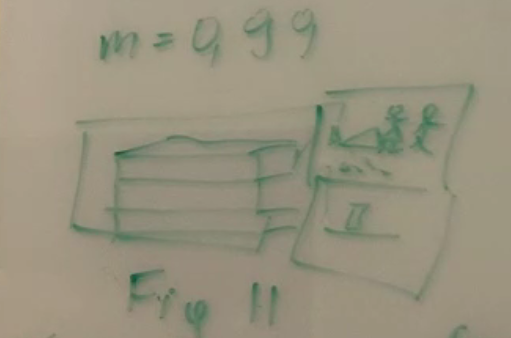 m = 0,99
II
Fig 11